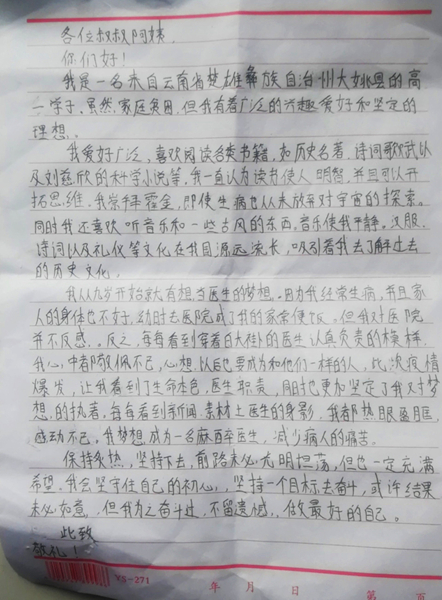 各位叔叔阿姨,
你们好!
我是一名来自云南省楚雄彝族自治州大姚县的高
一学子,虽然家庭贫困,但我有着广泛的兴趣爱好和坚定的
理想。
我爱好广泛,喜欢阅读各类书籍,如历史名著、诗词歌赋以
及刘慈欣的科学小说等,我一直认为读书使人明智,并且可以开
拓思维。我崇拜霍金,即使生病也从未放弃对宇宙的探索。
同时我还喜欢听音乐和一些古风的东西,音乐使我平静。汉服、
诗词以及礼仪等文化在我国源远流长,吸引着我去了解过去
的历史文化。
我从九岁开始就有想当医生的梦想。因为我经常生病,并且家
人的身体也不好,幼时去医院成了我的家常便饭。但我对医院
并不反感,反之,每每看到穿着白大褂的医生认真负责的模样,
我心中都敬佩不已,心想:以后也要成为和他们一样的人,此次疫情
爆发,让我看到了生命走色,医生职责,同时也更加坚定了我对梦
想的执著,每每看到新闻、素材上医生的身影,我都热眼盈眶,
感动不已,我梦想成为一名麻醉医生,减少病人的痛苦。
保持炙热,坚持下去,前路未必光明坦荡,但也一定充满
希望,我会坚守住自己的初心,坚持一个目标去奋斗,或许结果
未必如意,但我为之奋斗过,不留遗憾,做最好的自己。
此致
敬礼!
YS-271
年 月 日 第 页